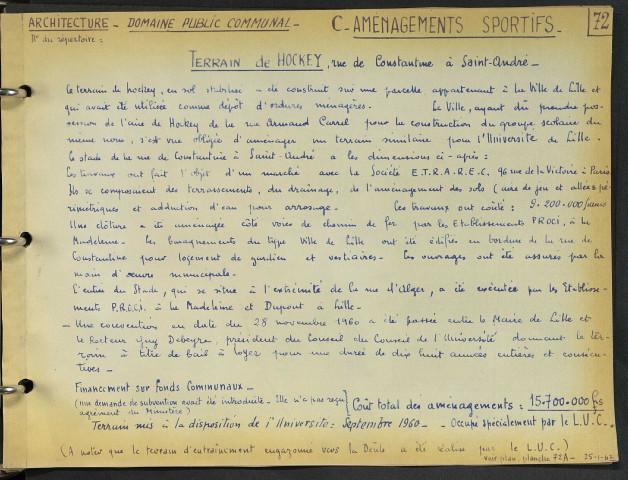 ARCHITECTURE - DOMAINE PUBLIC COMMUNAL - C - AMENAGEMENTS SPORTIFS - 72
N° du répertoire :
TERRAIN de HOCKEY, rue de Constantine à Saint-André -
Ce terrain de hockey, en sol stabilisé - été construit sur une parcelle appartenant à la Ville de Lille et
qui avait été utilisée comme dépôt d'ordures ménagères. La Ville, ayant dû prendre pos-
session de l'aire de Hockey de la rue Armand Carrel pour la construction du groupe scolaire du
même nom, s'est vue obligée d'aménager un terrain similaire pour l'Université de Lille.
Le stade de la rue de Constantine à Saint-André a les dimensions ci-après :
Ces travaux ont fait l'objet d'un marché avec la Société E.T.R.A.R.E.C, 96 rue de la Victoire à Paris
Ils se composaient des terrassements, du drainage, de l'aménagement des sols (aire de jeu et allées pé-
rimétriques et adduction d'eau pour arrosage. Ces travaux ont coûté : 9.200.000 francs
Une clôture a été aménagée côté voies de chemin de fer par les Etablissements PROCI, à La
Madeleine - Les baraquements du type Ville de Lille ont été édifiés en bordure de la rue de
Constantine pour logement de gardien et vestiaires - Les ouvrages ont été assurés par la
main d'œuvre municipale -
L'entrée du Stade, qui se situe à l'extrémité de la rue d'Alger, a été exécutée par les Etablisse-
ments P.R.O.C.I. à La Madeleine et Dupont à Lille -
- Une convention en date du 28 novembre 1960 a été passée entre le Maire de Lille et
le Recteur Guy Debeyre, président du Conseil du Conseil de l'Université donnant le ter-
rain à titre de bail à loyer pour une durée de dix huit années entières et consécu-
tives -
Financement sur fonds Communaux -
(une demande de subvention avait été introduite - Elle n'a pas reçu
agrément du Ministère) Coût total des aménagements : 15.700.000 frs
Terrain mis à la disposition de l'Université : Septembre 1960 - Occupé spécialement par le L.U.C.
(A noter que le terrain d'entraînement engazonné vers la Deûle a été réalisé par le L.U.C.)
voir plan, planche 72A - 25-1-62